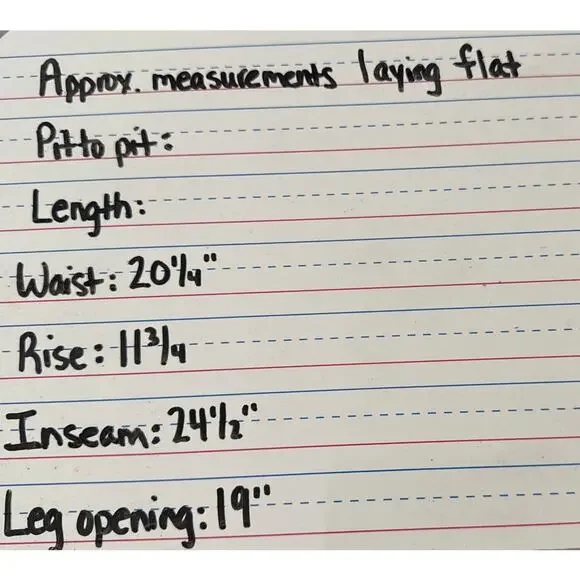 Approx. measurements laying flat
Pit to pit:
Length:
Waist: 20 1/4"
Rise: 11 3/4
Inseam: 24 1/2"
Leg opening: 19"